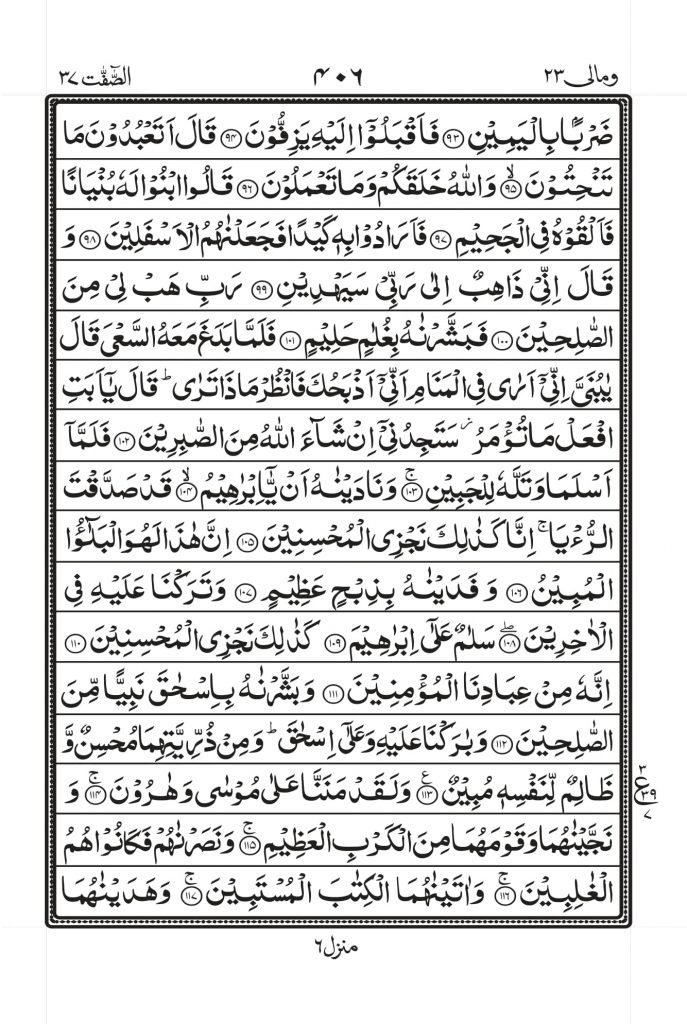 ومالی ۲۳ ۴۰۶ الصّٰٓفّٰت ۳۷
ضَرْبًۢا بِالْیَمِیْنِ ﴿۹۳﴾ فَاَقْبَلُوْۤا اِلَیْهِ یَزِفُّوْنَ ﴿۹۴﴾ قَالَ اَتَعْبُدُوْنَ مَا
تَنْحِتُوْنَ ﴿ۙ۹۵﴾ وَاللّٰهُ خَلَقَكُمْ وَمَا تَعْمَلُوْنَ ﴿۹۶﴾ قَالُوا ابْنُوْا لَهٗ بُنْیَانًا
فَاَلْقُوْهُ فِی الْجَحِیْمِ ﴿۹۷﴾ فَاَرَادُوْا بِهٖ كَیْدًا فَجَعَلْنٰهُمُ الْاَسْفَلِیْنَ ﴿۹۸﴾ وَ
قَالَ اِنِّیْ ذَاهِبٌ اِلٰی رَبِّیْ سَیَهْدِیْنِ ﴿۹۹﴾ رَبِّ هَبْ لِیْ مِنَ
الصّٰلِحِیْنَ ﴿۱۰۰﴾ فَبَشَّرْنٰهُ بِغُلٰمٍ حَلِیْمٍ ﴿۱۰۱﴾ فَلَمَّا بَلَغَ مَعَهُ السَّعْیَ قَالَ
یٰبُنَیَّ اِنِّیْۤ اَرٰی فِی الْمَنَامِ اَنِّیْۤ اَذْبَحُكَ فَانْظُرْ مَاذَا تَرٰی ؕ قَالَ یٰۤاَبَتِ
افْعَلْ مَا تُؤْمَرُ ؗ سَتَجِدُنِیْۤ اِنْ شَآءَ اللّٰهُ مِنَ الصّٰبِرِیْنَ ﴿۱۰۲﴾ فَلَمَّاۤ
اَسْلَمَا وَتَلَّهٗ لِلْجَبِیْنِ ﴿ۚ۱۰۳﴾ وَنَادَیْنٰهُ اَنْ یّٰۤاِبْرٰهِیْمُ ﴿ۙ۱۰۴﴾ قَدْ صَدَّقْتَ
الرُّءْیَا ۚ اِنَّا كَذٰلِكَ نَجْزِی الْمُحْسِنِیْنَ ﴿۱۰۵﴾ اِنَّ هٰذَا لَهُوَ الْبَلٰٓؤُا
الْمُبِیْنُ ﴿۱۰۶﴾ وَفَدَیْنٰهُ بِذِبْحٍ عَظِیْمٍ ﴿۱۰۷﴾ وَتَرَكْنَا عَلَیْهِ فِی
الْاٰخِرِیْنَ ﴿ۖ۱۰۸﴾ سَلٰمٌ عَلٰۤی اِبْرٰهِیْمَ ﴿۱۰۹﴾ كَذٰلِكَ نَجْزِی الْمُحْسِنِیْنَ ﴿۱۱۰﴾
اِنَّهٗ مِنْ عِبَادِنَا الْمُؤْمِنِیْنَ ﴿۱۱۱﴾ وَبَشَّرْنٰهُ بِاِسْحٰقَ نَبِیًّا مِّنَ
الصّٰلِحِیْنَ ﴿۱۱۲﴾ وَبٰرَكْنَا عَلَیْهِ وَعَلٰۤی اِسْحٰقَ ؕ وَمِنْ ذُرِّیَّتِهِمَا مُحْسِنٌ وَّ
ظَالِمٌ لِّنَفْسِهٖ مُبِیْنٌ ﴿۱۱۳﴾ ع وَلَقَدْ مَنَنَّا عَلٰی مُوْسٰی وَهٰرُوْنَ ﴿ۚ۱۱۴﴾ وَ
۳ ع ۳۹ ۷
نَجَّیْنٰهُمَا وَقَوْمَهُمَا مِنَ الْكَرْبِ الْعَظِیْمِ ﴿ۚ۱۱۵﴾ وَنَصَرْنٰهُمْ فَكَانُوْا هُمُ
الْغٰلِبِیْنَ ﴿ۚ۱۱۶﴾ وَاٰتَیْنٰهُمَا الْكِتٰبَ الْمُسْتَبِیْنَ ﴿ۚ۱۱۷﴾ وَهَدَیْنٰهُمَا
منزل ۶